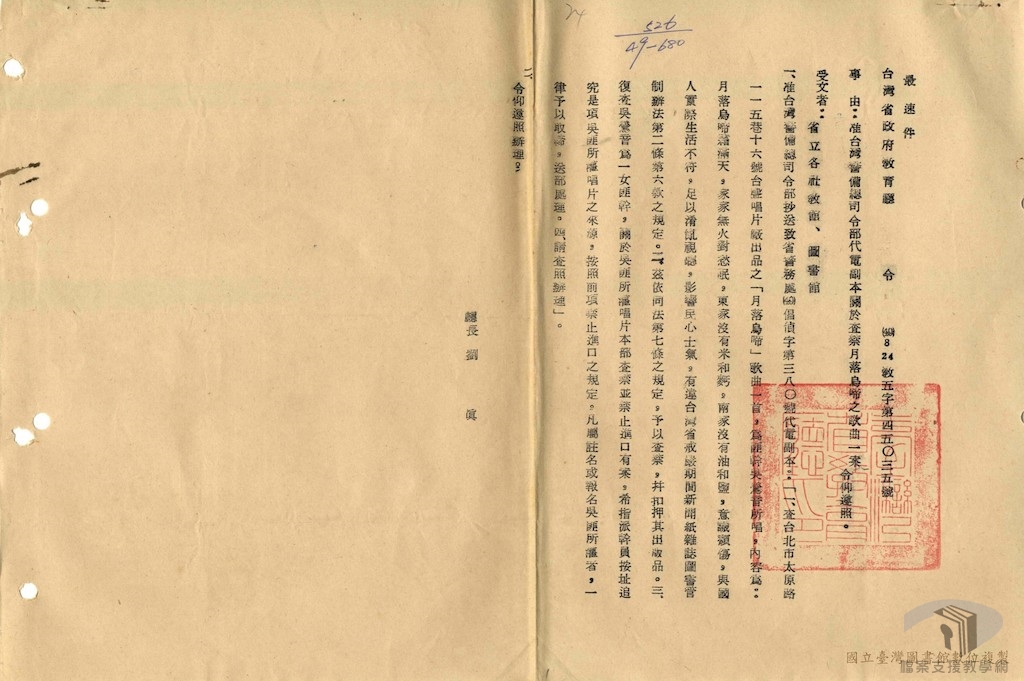 24
526
49-680
最速件
台灣省政府教育廳 令 824教五字第四五〇三五號
事 由：准台灣警備總司令部代電副本關於查禁月落烏啼之歌曲一案令仰遵照。
受文者：省立各社教館、圖書館
一、准台灣警備總司令部抄送致省警務處倡偵字第三八〇號代電副本：「一、查台北市太原路
一一五巷十六號台聲唱片廠出品之「月落烏啼」歌曲一首，爲匪幹吳鶯音所唱，內容爲：
月落烏啼霜滿天，家家無火對愁眠，東家沒有米和麵，西家沒有油和鹽，意識頹傷，與國
人實際生活不符，足以淆亂視聽，影響民心士氣，有違台灣省戒嚴期間新聞紙雜誌圖書管
制辦法第二條第六款之規定。二、茲依同法第七條之規定，予以查禁，幷扣押其出版品。三、
復查吳鶯音爲一女匪幹，關於吳匪所灌唱片本部查禁並禁止進口有案，希指派幹員按址追
究是項吳匪所灌唱片之來源，按照前項禁止進口之規定，凡屬註名或報名吳匪所灌者，一
律予以取締，送部處理。四、請查照辦理」。
二、令仰遵照辦理。
廳長 劉 眞
國立臺灣圖書館數位複製
檔案支援教學網